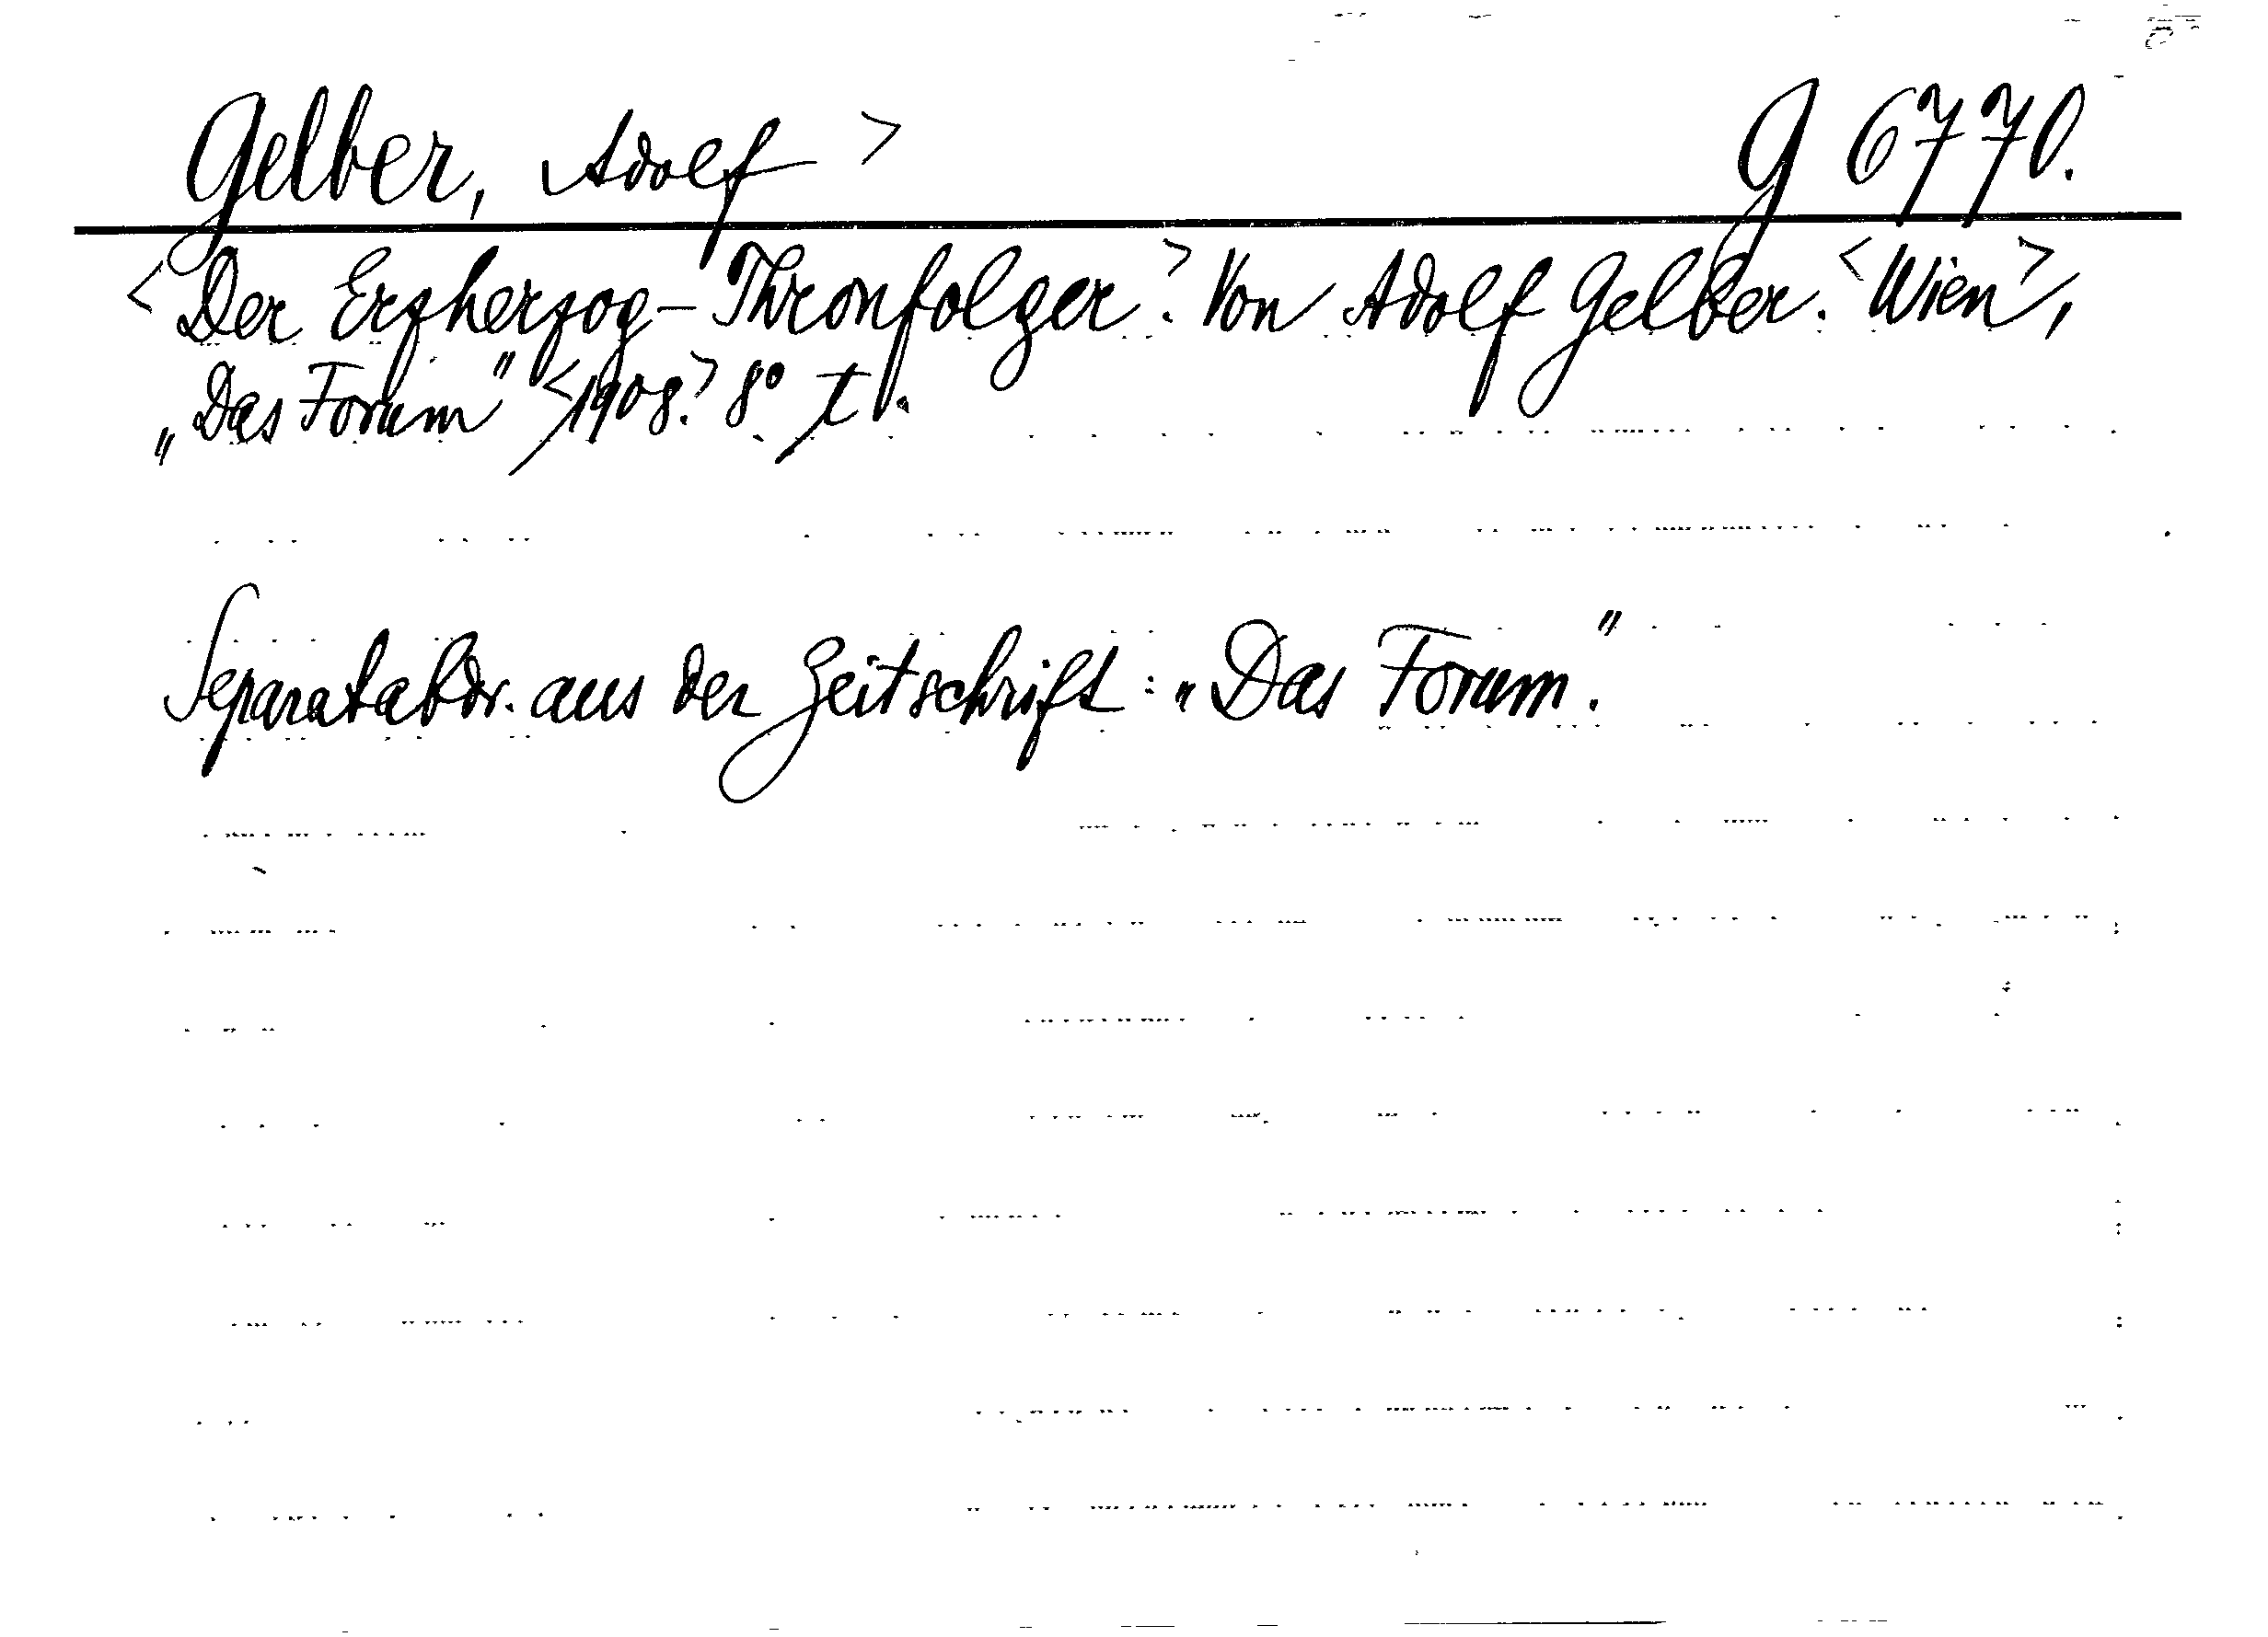 Gelber, Adolf > G 6770.
<Der Erzherzog-Thronfolger.> Von Adolf Gelber. <Wien>,
„Das Forum" <1908.> 8°
Separatabdr. aus der Zeitschrift: „Das Forum."